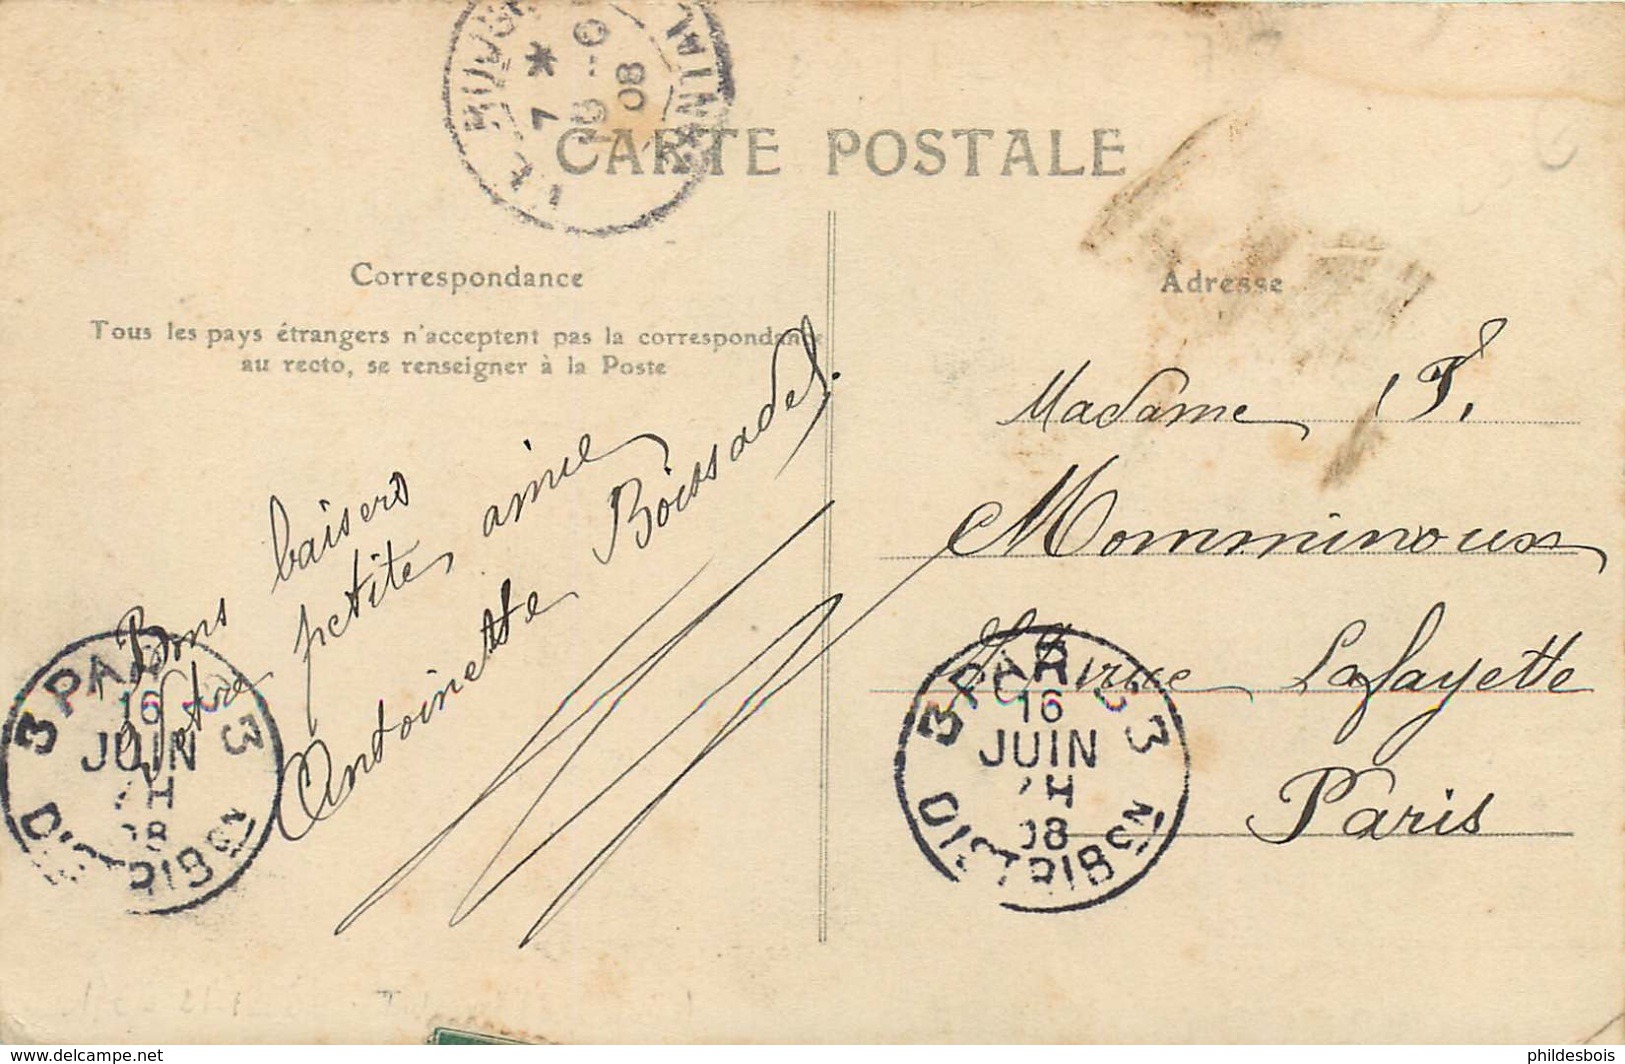 CARTE POSTALE
Correspondance
Tous les pays étrangers n'acceptent pas la correspondance
au recto, se renseigner à la Poste
Bons baisers
Votre petite amie
Antoinette Boissadel.
Adresse
Madame F.
Momminoux
rue Lafayette
Paris
7 *
08
3 PARIS 3
16
JUIN
H
08
DISTRIBON
3 PARIS 3
16
JUIN
H
08
DISTRIBON
www.delcampe.net
phildesbois